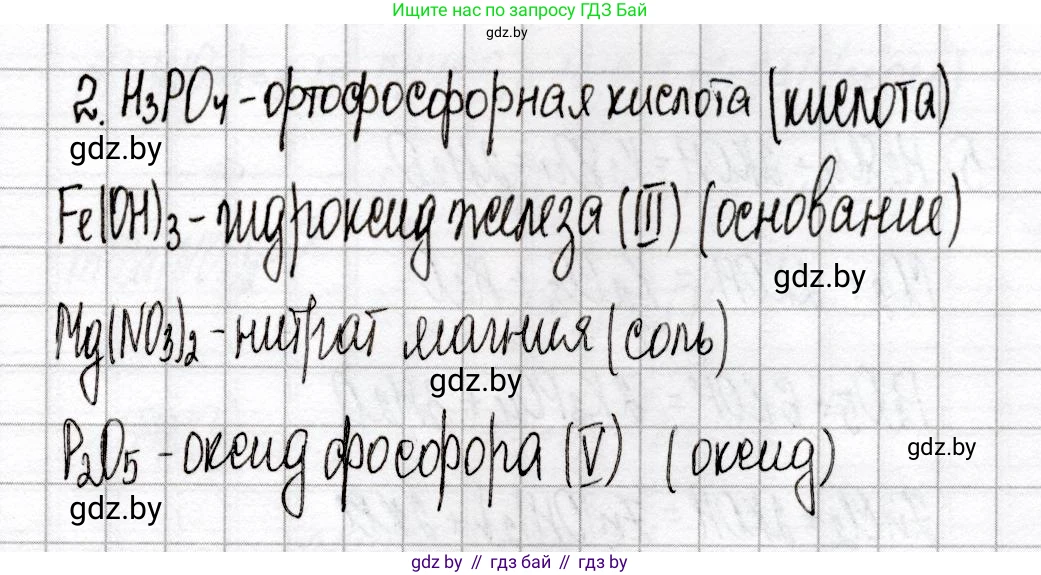 Ищите нас по запросу ГДЗ Бай
gdz.by
2. H₃PO₄ - ортофосфорная кислота (кислота)
gdz.by
Fe(OH)₃ - гидроксид железа (III) (основание)
gdz.by
Mg(NO₃)₂ - нитрат магния (соль)
gdz.by
P₂O₅ - оксид фосфора (V) (оксид)
gdz.by
gdz.by
gdz.by // гдз бай // гдз by